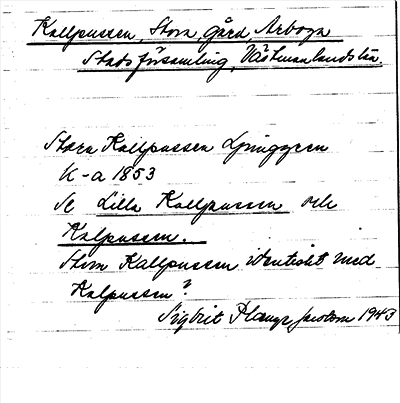 Kallpussen, Stora, gård, Arboga
Stadsförsamling, Västmanlands län.
Stora Kallpussen Ljunggren
K-a 1853
Se Lilla Kallpussen och
Kalpussen.
Stora Kallpussen identiskt med
Kalpussen?
Sigbrit Plænge Jacobson 1943